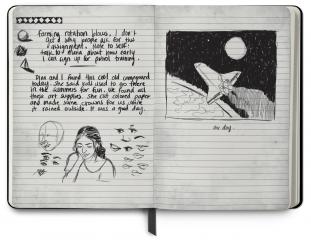 farming rotation blows. I don't
get why people ask for this
assignment. Note to self:
talk to them about how early
I can sign up for patrol training.
Dina and I found this cool old campground
today. She said you used to go there
in the summers for fun. We found all
these art supplies. She cut colored paper
and made some crowns for us while
it rained outside. It was a good day.
one day.